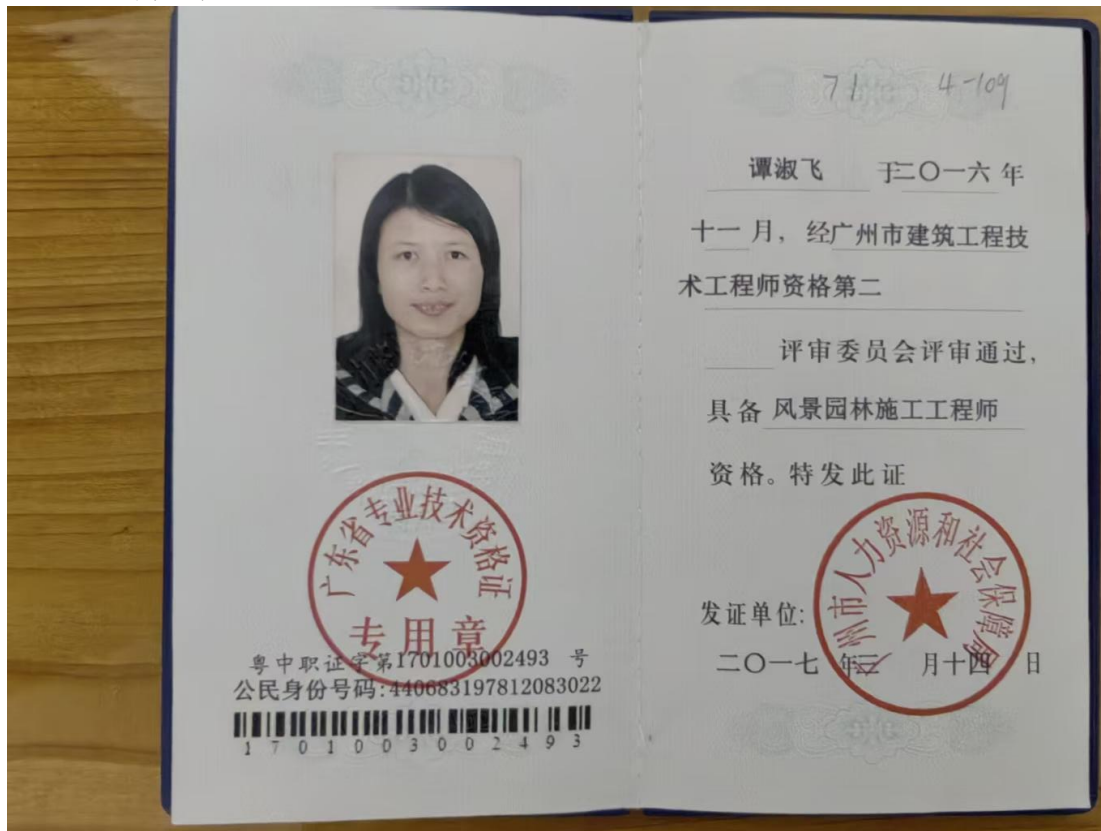 广东省专业技术资格证
专用章
粤中职证字第1701003002493 号
公民身份号码:440683197812083022
1701003002493
71 4-109
谭淑飞 于二〇一六年
十一月，经广州市建筑工程技
术工程师资格第二
评审委员会评审通过，
具备 风景园林施工工程师
资格。特发此证
广州市人力资源和社会保障局
发证单位:
二〇一七 年三 月十四 日